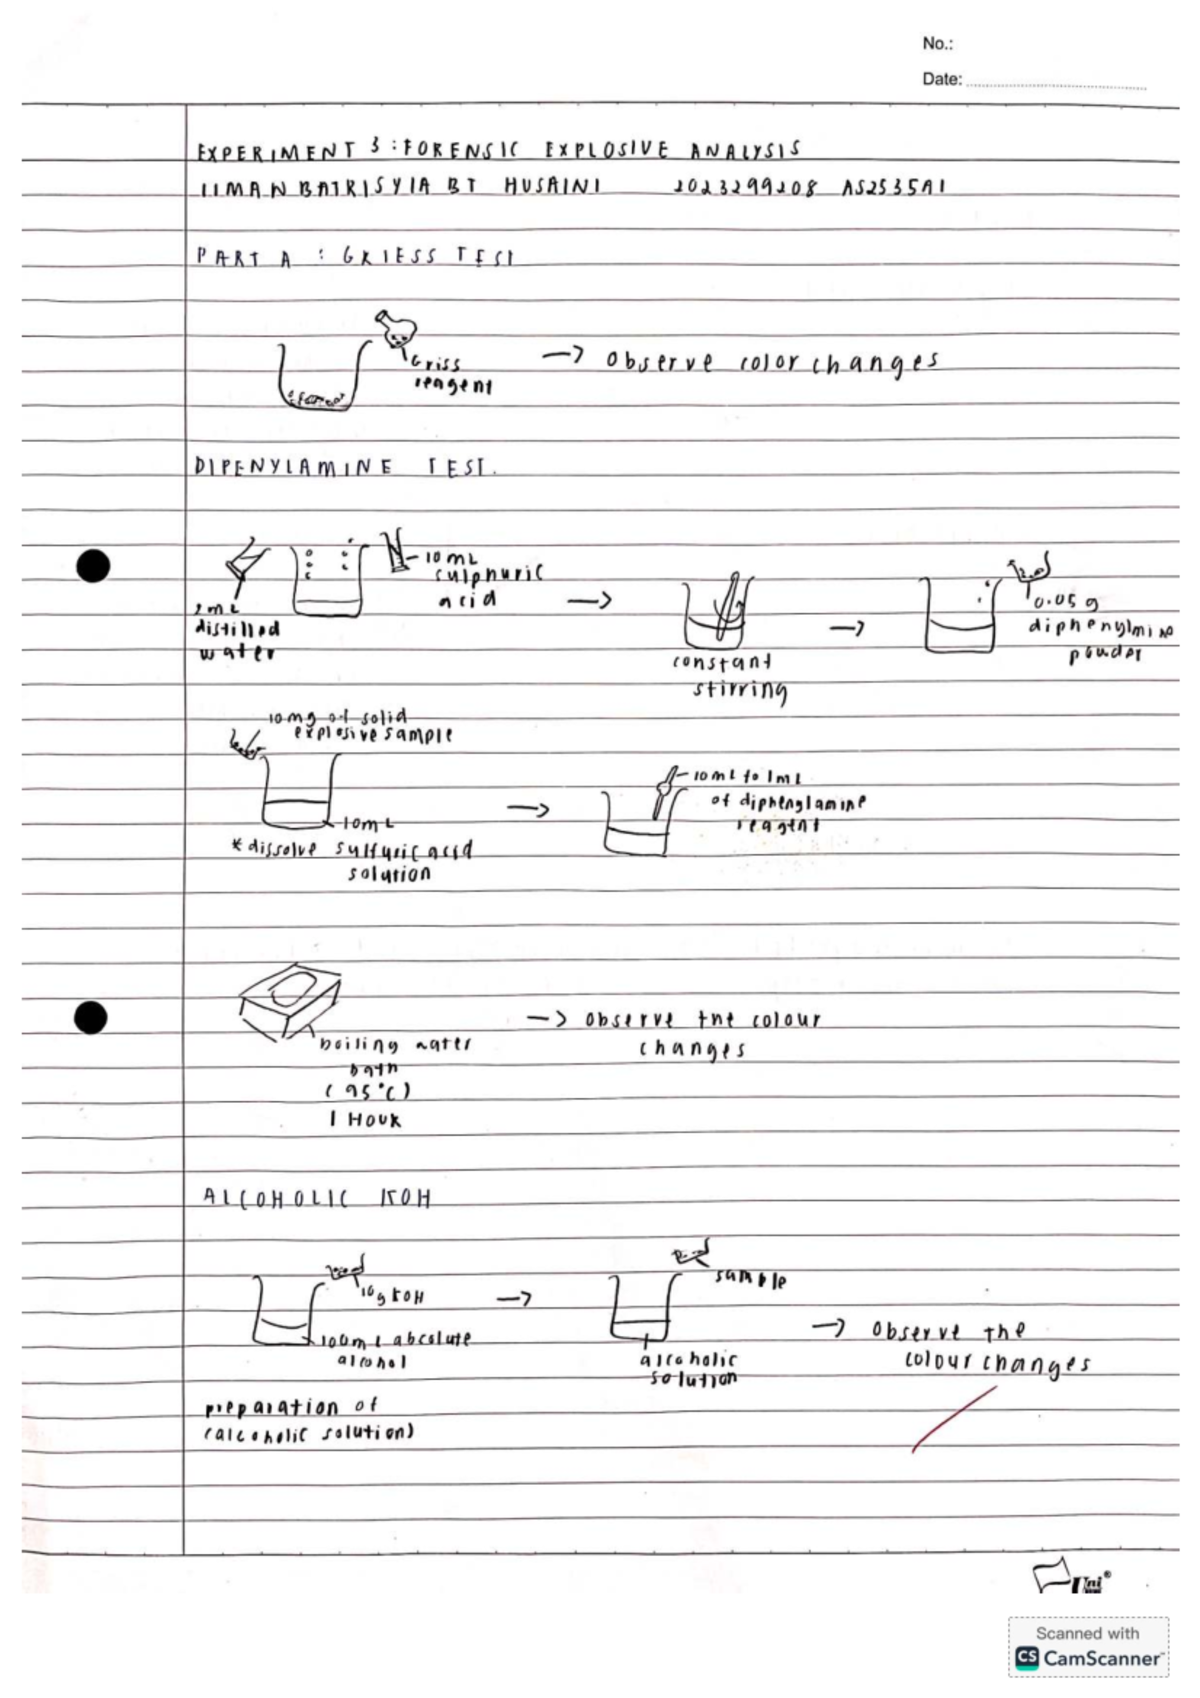 No.:
Date:
EXPERIMENT 3 : FORENSIC EXPLOSIVE ANALYSIS
IIMAN BATRISYIA BT HUSAINI 2023299208 AS2535A1
PART A : GRIESS TEST
Griss
reagent
→ Observe color changes
DIPENYLAMINE TEST.
2mL
distilled
water
10 mL
sulphuric
acid
→
constant
stirring
→
0.05 g
diphenylmine
powder
10mg of solid
explosive sample
10mL
* dissolve sulfuric acid
solution
→
10mL to 1mL
of diphenylamine
reagent
boiling water
bath
(95°C)
1 HOUR
→ Observe the colour
changes
ALCOHOLIC KOH
10g KOH
100mL absolute
alcohol
preparation of
(alcoholic solution)
→
sample
alcoholic
solution
→ Observe the
colour changes
Uni®
Scanned with
CS CamScanner